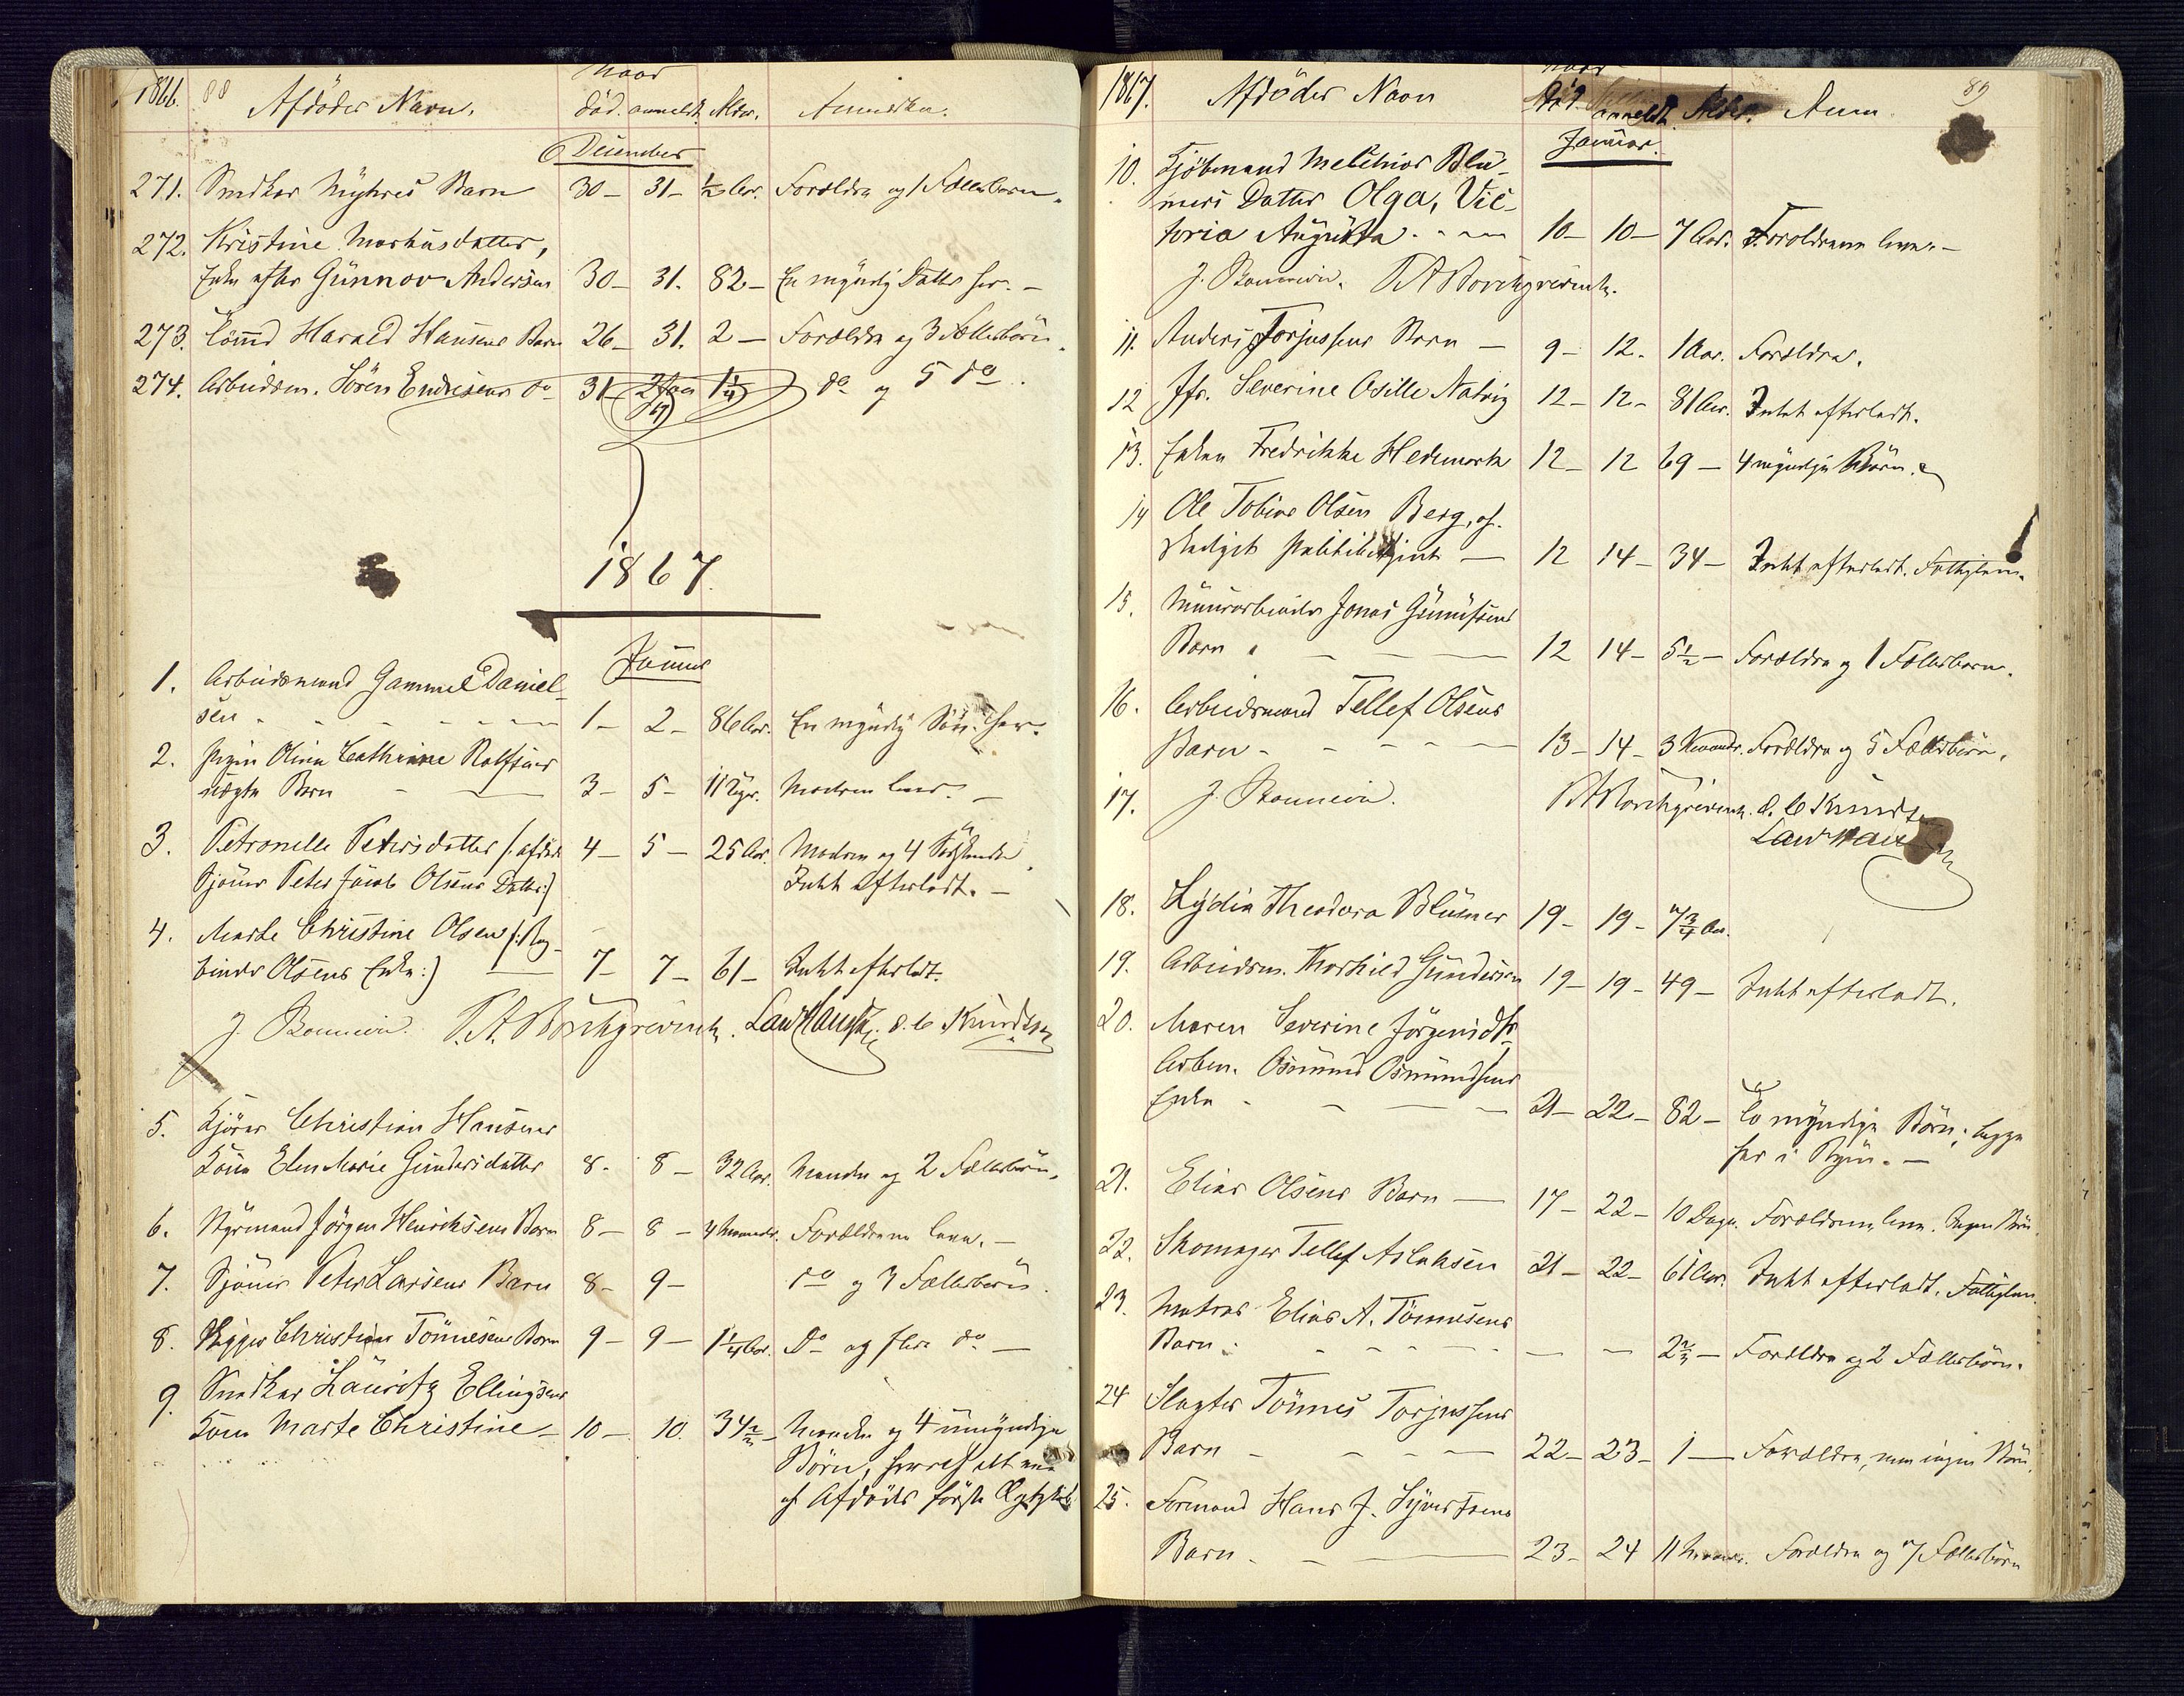 1866. 88 Afdødes Navn. Naar død. anmeldt. Alder. Anmærkn.
December
271. Snedker Myhres Barn 30 – 31 – ½ Aar. Forældre og 1 Fællesbarn.
272. Kristine Markusdatter,
Enke efter Gunnov Andersen 30 – 31. 82 – En myndig Datter her. –
273. Harald Hansens Barn 26 – 31. 2 – Forældre og 3 Fællesbørn.
274. Arbeidsm. Sören Endresens do 31 – 2 Jan 67 1¼ do og 5 do.
1867.
Januar
1. Arbeidsmand Gammel Daniel-
sen 1 – 2 – 86 Aar. En myndig Sön her.
2. Pigen Olina Cathrine Rolfsens
uægte Barn 3 – 5 – 11 Dger. Moderen lever. –
3. Petronelle Petersdatter (: afdøde 4 – 5 – 25 Aar. Moderen og 4 Söskende
Sjömd Peter Jacob Olsens Datter:) Intet efterladt. –
4. Marte Christine Olsen (: Bog-
binder Olsens Enke:) 7 – 7 – 61 – Intet efterladt.
J. Bommen. P.A. Borchgrevink. Laur Hansen. O. C. Knudsen
5. Kjörer Christian Hansens
Kone Elen Marie Gundersdatter 8 – 8 – 32 Aar. Manden og 2 Fællesbörn.
6. Styrmand Jörgen Henriksens Barn 8 – 8 – 4 Maaneder. Forældrene leve. –
7. Sjömd Peter Larsens Barn 8 – 9 – do og 3 Fællesbörn.
8. Skipper Christian Tönnesens Barn 9 – 9 – 1¼ Aar. Do og flere do –
9. Snedker Lauritz Ellingsens
Kone Marte Christine – 10 – 10. 34½ – Manden og 4 umyndige
Börn, hvoraf et
af Afdødes første Ægteskab
1867. Afdödes Navn Naar død. anmeldt. Alder. Anm. 89
Januar.
10. Kjöbmand Melchior Blu-
mers Datter Olga, Vic-
toria Augusta 10 – 10 – 7 Aar. Forældrene leve. –
J. Bommen. P A Borchgrevink.
11. Anders Torjussens Barn – 9 – 12. 1 Aar. Forældre.
12 Jfr. Severine Osille Natvig 12 – 12 – 81 Aar. Intet efterladt.
13. Enken Fredrikke Hedemark 12 – 12 69 – 4 myndige Börn.
14 Ole Tobias Olsen Berg, af-
skediget Politibetjent – 12 14 – 34 – Intet efterladt. Fattiglem.
15. Muurarbeider Jonas Gunufsens
Barn 12 14 – 5½ – Forældre og 1 Fællesbarn.
16. Arbeidsmand Tellef Olsens
Barn – 13 – 14 – 3 Maander. Forældre og 5 Fællesbörn.
17. J. Bommen. P A Borchgrevink. O. C Knudsen
Laur Hansen
18. Lydia Theodora Blumer 19 – 19 – 7¾ Aar.
19. Arbeidsm. Thorkild Gundersen 19 – 19 – 49 – Intet efterladt.
20. Maren Severine Jörgensdtr
Arbm. Osmund Osmundsens
Enke – 21 – 22 – 82 – To myndige Börn; begge
her i Byen. –
21. Elias Olsens Barn – 17 – 22 – 10 Dage. Forældrene leve. Ingen Börn.
22. Skomager Tellef Aslaksen 21 – 22 – 61 Aar. Intet efterladt. Fattiglem.
23. Matros Elias A. Tönnesens
Barn – 2½ – Forældre og 2 Fællesbörn.
24 Slagter Tönnes Torjussens
Barn – 22 – 23 – 1 – Forældre, men ingen Börn.
25. Formand Hans J. Syvertsens
Barn – 23 – 24 11 Maaneder. Forældre og 7 Fællesbörn